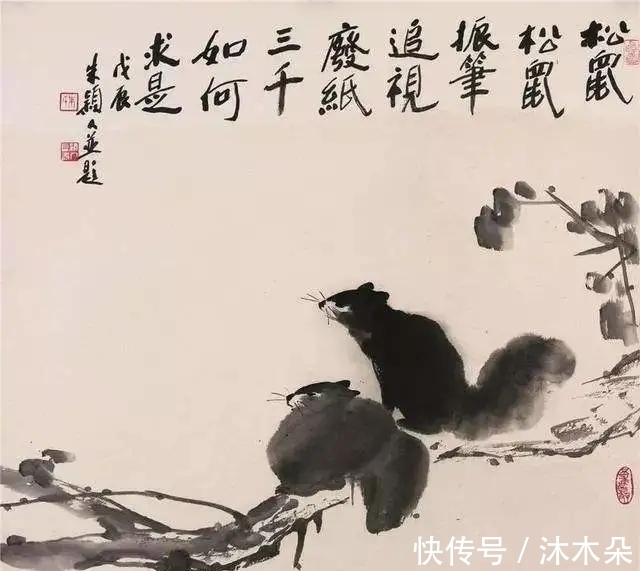 松鼠
松鼠
振筆
追視
廢紙
三千
如何
求是
戊辰
朱穎人並題
快传号 / 沐木朵